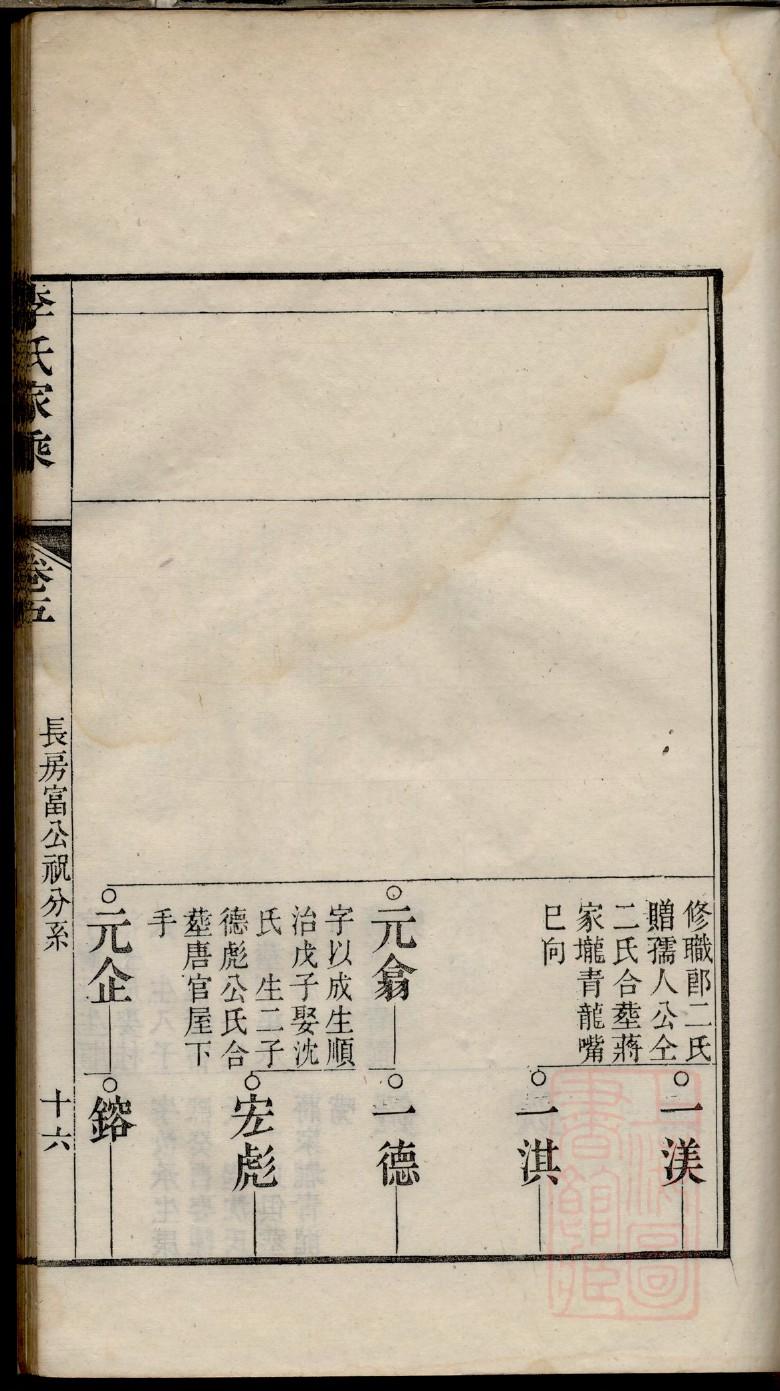 修職郎二氏
贈孺人公仝
二氏合塟蔣
家壠青龍嘴
巳向
一渼
一淇
元翕
字以成生順
治戊子娶沈
氏 生二子
德彪公氏合
塟唐官屋下
手
一德
宏彪
元企
鎔
李氏家乘
卷五
長房富公祝分系
十六
上海圖書館藏